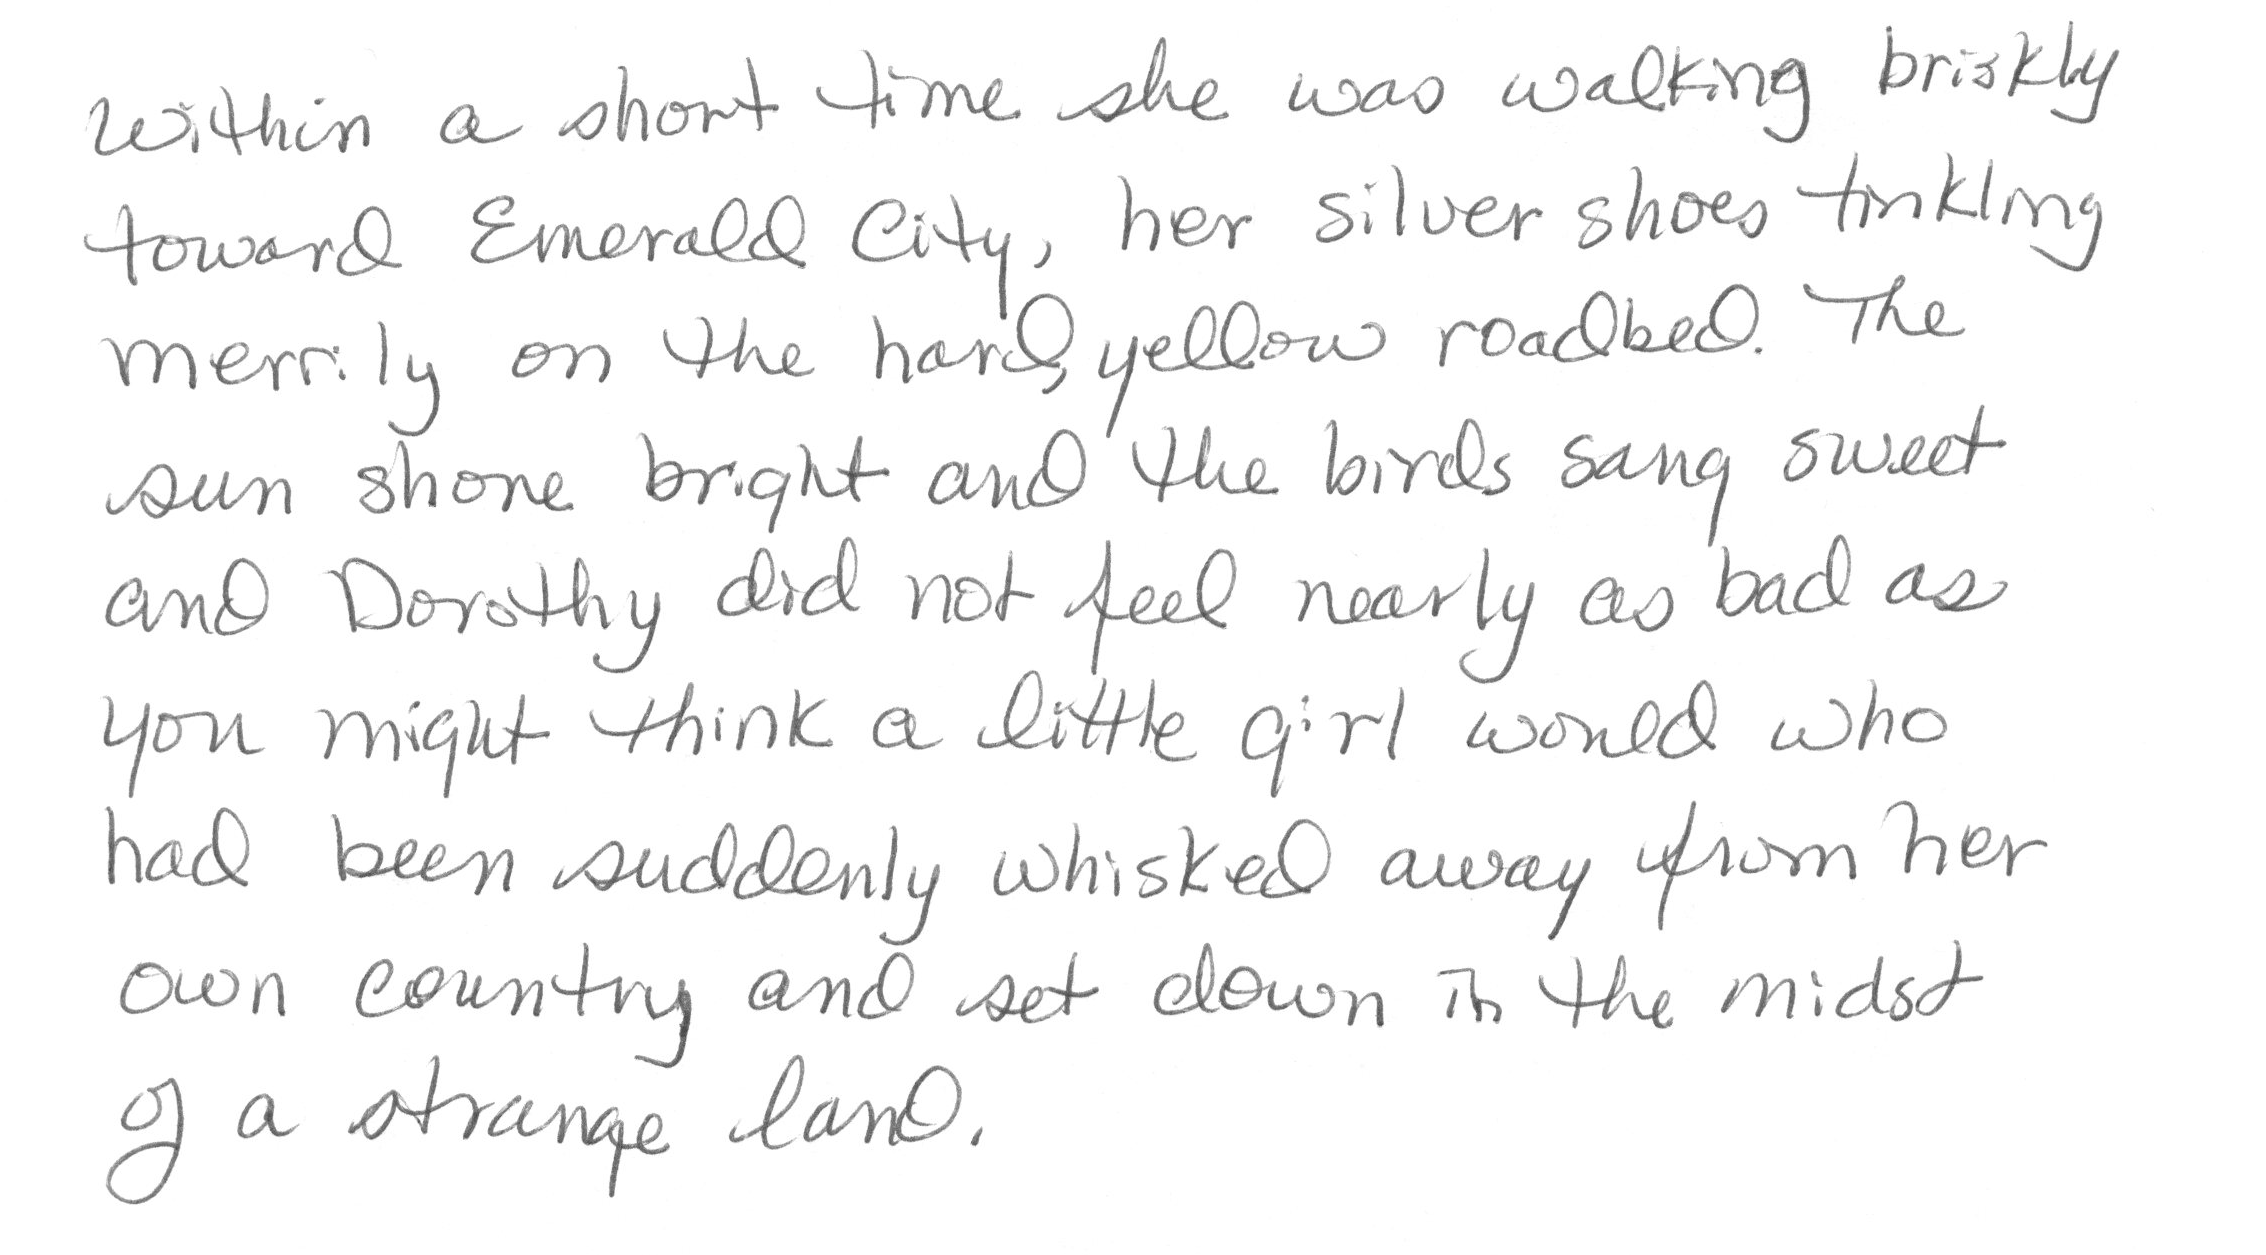 Within a short time she was walking briskly
toward Emerald City, her silver shoes tinkling
merrily on the hard, yellow roadbed. The
sun shone bright and the birds sang sweet
and Dorothy did not feel nearly as bad as
you might think a little girl would who
had been suddenly whisked away from her
own country and set down in the midst
of a strange land.